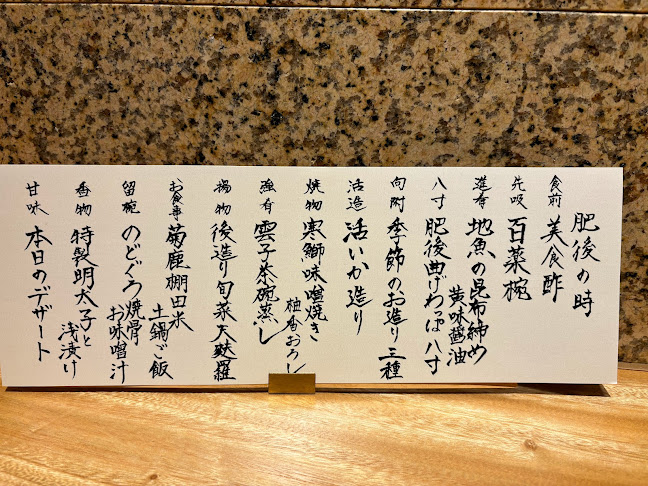 肥後の時
食前 美食酢
先吸 百菜椀
進肴 地魚の昆布締め
黄味醤油
八寸 肥後曲げわっぱ八寸
向附 季節のお造り三種
活造 活いか造り
焼物 寒鰤味噌幽焼き
柚香おろし
強肴 雲子茶碗蒸し
揚物 後造り旬菜天麩羅
お食事 菊鹿棚田米
土鍋ご飯
留椀 のどぐろ焼骨
お味噌汁
香物 特製明太子と
浅漬け
甘味 本日のデザート